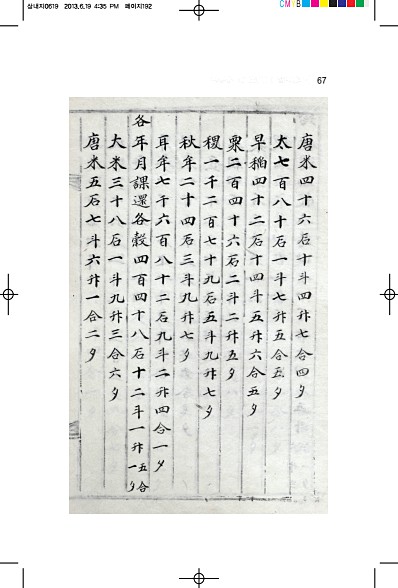 삼내지0619 2013.6.19 4:35 PM 페이지192
CMYB
67
唐米四十六石十斗四升七合四夕
太七百八十石一斗七升五合五夕
早稲四十二石十四斗五升六合五夕
粟二百四十六石二斗二升五夕
稷一千二百七十九石五斗九升七夕
秋牟二十四石三斗九升七夕
耳牟七千六百八十二石九斗二升四合一夕
各年月課還各穀四百四十八石十二斗一升五合一夕
大米三十八石一斗九升三合六夕
唐米五石七斗六升一合二夕